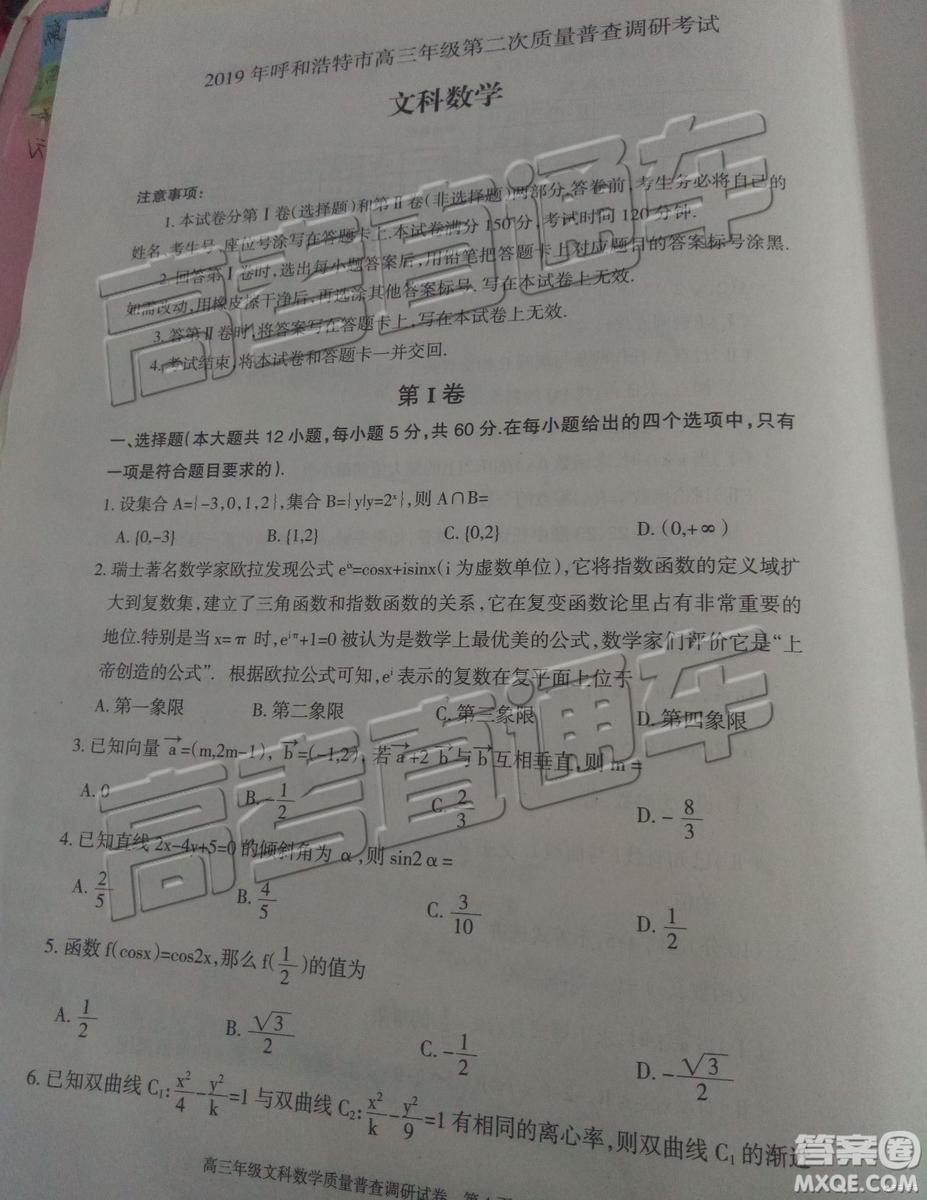 2019 年呼和浩特市高三年级第二次质量普查调研考试
文科数学
注意事项:
1.本试卷分第Ⅰ卷(选择题)和第Ⅱ卷(非选择题)两部分.答卷前,考生务必将自己的
姓名、考生号、座位号涂写在答题卡上.本试卷满分 150 分,考试时间 120 分钟.
2.回答第Ⅰ卷时,选出每小题答案后,用铅笔把答题卡上对应题目的答案标号涂黑.
如需改动,用橡皮擦干净后,再选涂其他答案标号.写在本试卷上无效.
3.答第Ⅱ卷时,将答案写在答题卡上,写在本试卷上无效.
4.考试结束,将本试卷和答题卡一并交回.
第 I 卷
一、选择题(本大题共 12 小题,每小题 5 分,共 60 分.在每小题给出的四个选项中,只有
一项是符合题目要求的).
1.设集合 A={-3,0,1,2},集合 B={y|y=2ˣ},则 A∩B=
A. {0,-3} B. {1,2} C. {0,2} D. (0,+∞)
2. 瑞士著名数学家欧拉发现公式 eⁱˣ=cosx+isinx(i 为虚数单位),它将指数函数的定义域扩
大到复数集,建立了三角函数和指数函数的关系,它在复变函数论里占有非常重要的
地位.特别是当 x=π 时,e^{iπ}+1=0 被认为是数学上最优美的公式,数学家们评价它是“上
帝创造的公式”. 根据欧拉公式可知,eⁱ 表示的复数在复平面上位于
A. 第一象限 B. 第二象限 C. 第三象限 D. 第四象限
3. 已知向量 a→=(m,2m-1), b→=(-1,2), 若 a→+2 b→与b→互相垂直,则 m =
A. 0 B. -1/2 C. 2/3 D. -8/3
4. 已知直线 2x-4y+5=0 的倾斜角为 α,则 sin2α=
A. 2/5 B. 4/5 C. 3/10 D. 1/2
5. 函数 f(cosx)=cos2x,那么 f(1/2)的值为
A. 1/2 B. √3/2 C. -1/2 D. -√3/2
6. 已知双曲线 C₁:x²/4-y²/k=1 与双曲线 C₂:x²/k-y²/9=1 有相同的离心率,则双曲线 C₁ 的渐近
高三年级文科数学质量普查调研试卷
高考直通车
高考直通车
答案圈
MXQE.COM